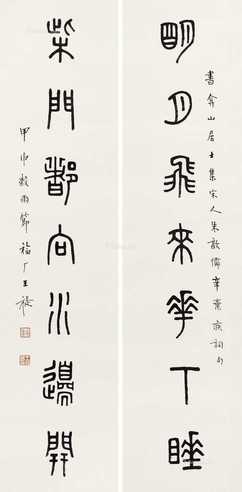 書弇山居士集宋人朱敦儒辛棄疾詞句
明月飛來華下睡
柴門都向水邊開
甲申穀雨節福厂王禔